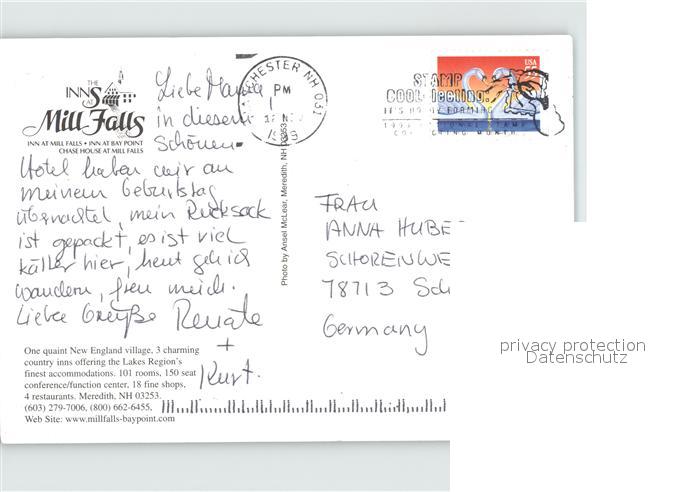 THE
INNS
AT
Mill Falls
INN AT MILL FALLS • INN AT BAY POINT
CHASE HOUSE AT MILL FALLS
Liebe Mama
in diesem
schönen
Hotel haben wir an
meinem Geburtstag
übernachtet, mein Rucksack
ist gepackt, es ist viel
kälter hier, heut geh ich
wandern, freu mich.
Liebe Grüße Renate
+
Kurt.
One quaint New England village, 3 charming
country inns offering the Lakes Region's
finest accommodations. 101 rooms, 150 seat
conference/function center, 18 fine shops,
4 restaurants. Meredith, NH 03253.
(603) 279-7006, (800) 662-6455,
Web Site: www.millfalls-baypoint.com
Photo by Ansel McLear, Meredith, NH 03253
CHESTER NH 031
PM
USA
STAMP
FRAU
ANNA HUBE
SCHORENWE
78713 Sch
Germany
privacy protection
Datenschutz